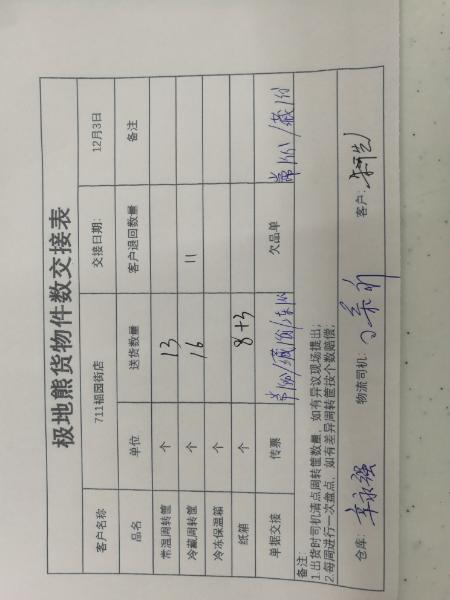 极地熊货物件数交接表
客户名称 711福园街店 交接日期: 12月3日
品名 单位 送货数量 客户退回数量 备注
常温周转筐 个 13
冷藏周转筐 个 16 11
冷冻保温箱 个
纸箱 个 8+3
单据交接 传票 欠品单
备注:
1.出货时司机清点周转筐数量,如有异议现场提出;
2.每周进行一次盘点,如有差异周转筐按个数赔偿;
仓库: 辛永强 物流司机: 客户: